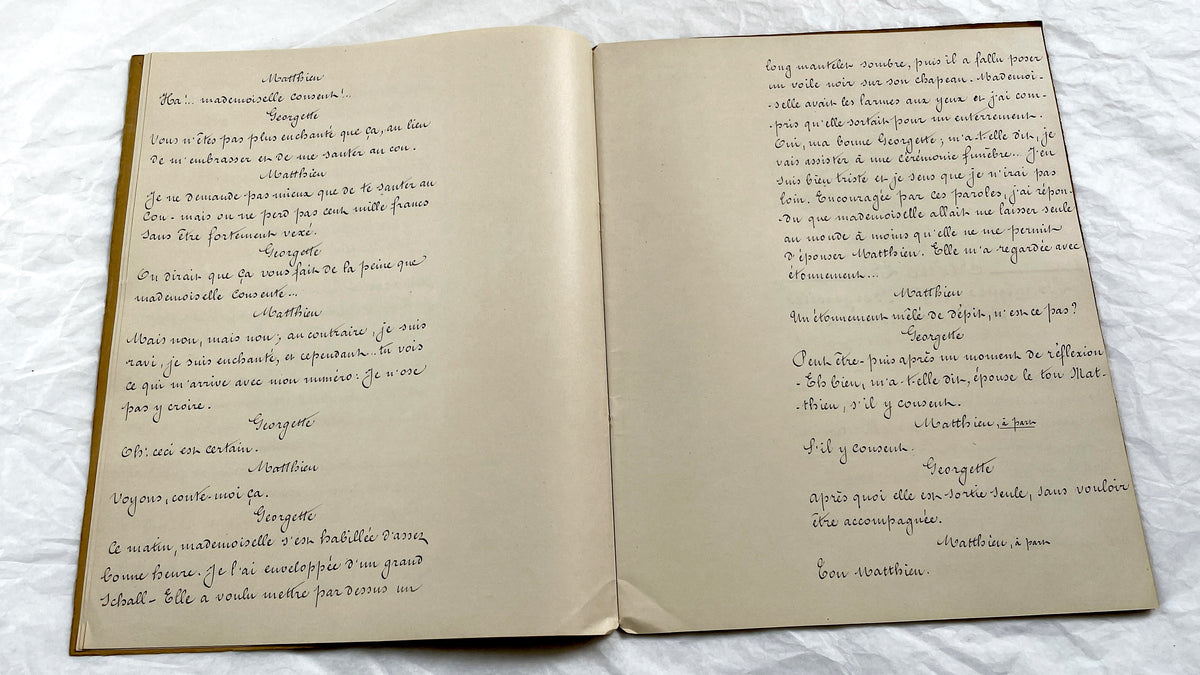 Matthieu
Ha!.. mademoiselle consent!..
Georgette
Vous n'êtes pas plus enchanté que ça, au lieu
de m'embrasser et de me sauter au cou.
Matthieu
Je ne demande pas mieux que de te sauter au
cou - mais on ne perd pas cent mille francs
sans être fortement vexé.
Georgette
On dirait que ça vous fait de la peine que
mademoiselle consente...
Matthieu
Mais non, mais non; au contraire, je suis
ravi, je suis enchanté, et cependant... tu vois
ce qui m'arrive avec mon numéro: Je n'ose
pas y croire.
Georgette
Oh! ceci est certain.
Matthieu
Voyons, conte-moi ça.
Georgette
Ce matin, mademoiselle s'est habillée d'assez
bonne heure. Je l'ai enveloppée d'un grand
schall - Elle a voulu mettre par dessus un
long mantelet sombre, puis il a fallu poser
un voile noir sur son chapeau. Mademoi-
-selle avait les larmes aux yeux et j'ai com-
-pris qu'elle sortait pour un enterrement.
Oui, ma bonne Georgette, m'a-t-elle dit, je
vais assister à une cérémonie funèbre... J'en
suis bien triste et je sens que je n'irai pas
loin. Encouragée par ces paroles, j'ai répon-
du que mademoiselle allait me laisser seule
au monde à moins qu'elle ne me permit
d'épouser Matthieu. Elle m'a regardée avec
étonnement...
Matthieu
Un étonnement mêlé de dépit, n'est ce pas?
Georgette
Peut être - puis après un moment de réflexion
- Eh bien, m'a-t-elle dit, épouse le ton Mat-
-thieu, s'il y consent.
Matthieu, à part
S'il y consent.
Georgette
après quoi elle est sortie seule, sans vouloir
être accompagnée.
Matthieu, à part
Ton Matthieu.